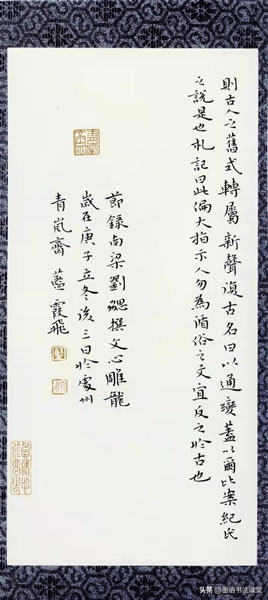 則古人之舊式轉屬新聲復古名曰以通變蓋以爾比案紀氏
之說是也札記曰此偏大指示人勿為循俗之文宜反之於古也
節錄南梁劉勰撰文心雕龍
歲在庚子立冬後三日於處州
青嵐齋藍霞飛
头条 @国语书法课堂